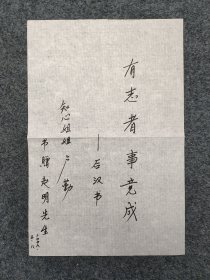 有志者事竟成
——后汉书
知心姐姐卢勤
书赠延明先生